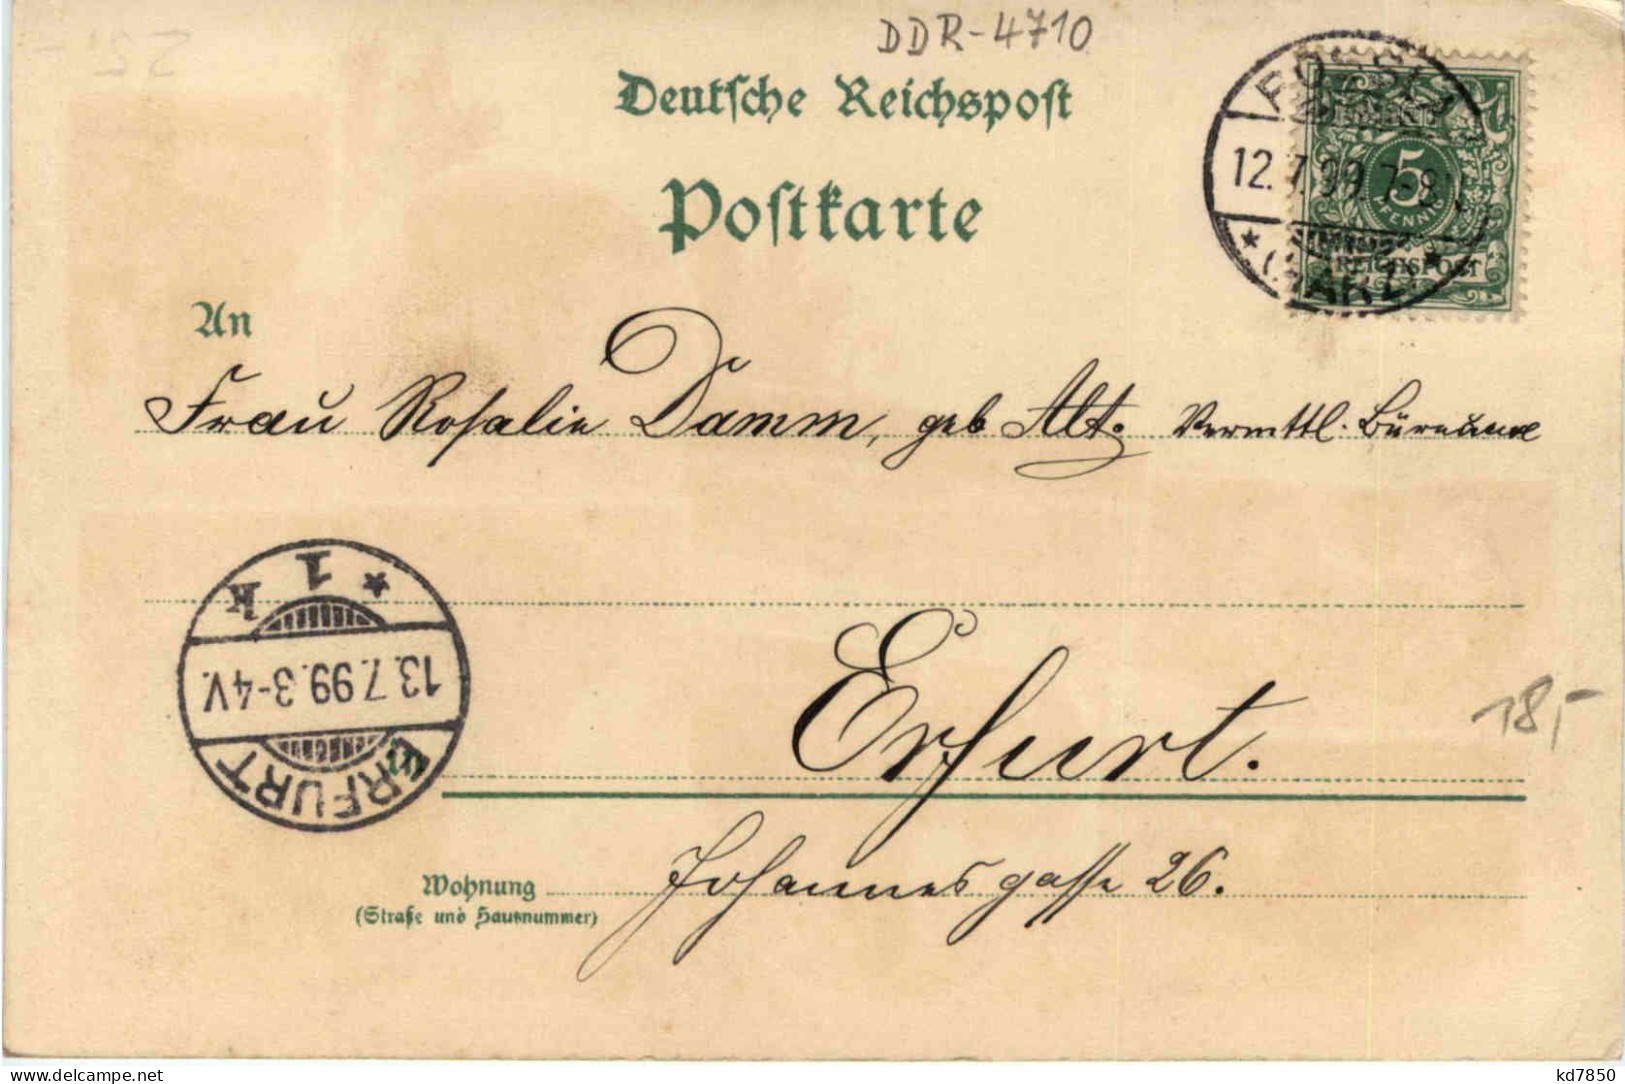 DDR-4710
25,-
Deutsche Reichspost
Postkarte
ROSSLA
12.7.99. 7-8
* (HARZ) *
5
PFENNIG
REICHSPOST
An
Frau Rosalie Damm, geb Alt. Vermittl. Büreau
* 1 k
13.7.99.3-4V.
ERFURT
Erfurt.
18,-
Wohnung Johannesgasse 26.
(Straße und Hausnummer)
delcampe.net
kd7850